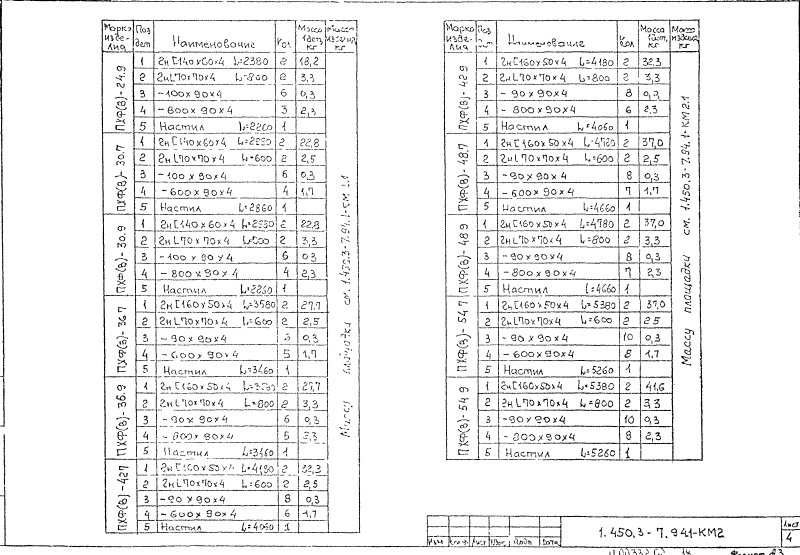 Марка изделия | Поз. дет. | Наименование | Кол. | Масса 1дет, кг | Масса изделия, кг
ПХФ(В)-24.9
1 | Гн[140×60×4 L=2380 | 2 | 18,2
2 | ГнL70×70×4 L=800 | 2 | 3,3
3 | -100×90×4 | 6 | 0,3
4 | -800×90×4 | 3 | 2,3
5 | Настил L=2260 | 1
ПХФ(В)-30.7
1 | Гн[140×60×4 | 2 | 22,8
2 | ГнL70×70×4 L=600 | 2 | 2,5
3 | -100×90×4 | 6 | 0,3
4 | -600×90×4 | 4 | 1,7
5 | Настил L=2860 | 1
ПХФ(В)-30.9
1 | Гн[140×60×4 | 2 | 22,8
2 | ГнL70×70×4 | 2 | 3,3
3 | -100×90×4 | 6 | 0,3
4 | -800×90×4 | 4 | 2,3
5 | Настил | 1
ПХФ(В)-36.7
1 | Гн[160×50×4 L=3580 | 2 | 27,7
2 | ГнL70×70×4 L=600 | 2 | 2,5
3 | -90×90×4 | 0,3
4 | -600×90×4 | 5 | 1,7
5 | Настил L=3460 | 1
ПХФ(В)-36.9
1 | Гн[160×50×4 | 2 | 27,7
2 | ГнL70×70×4 L=800 | 2 | 3,3
3 | -90×90×4 | 6 | 0,3
4 | -800×90×4 | 5 | 2,3
5 | Настил L=3460 | 1
ПХФ(В)-42.7
1 | Гн[160×50×4 L=4180 | 2 | 32,3
2 | ГнL70×70×4 L=600 | 2 | 2,5
3 | -90×90×4 | 8 | 0,3
4 | -600×90×4 | 6 | 1,7
5 | Настил L=4060 | 1
Массу площадки см. 1.450.3-7.94.1-КМ2.1
Марка изделия | Поз. дет. | Наименование | Кол. | Масса 1дет, кг | Масса изделия, кг
ПХФ(В)-42.9
1 | Гн[160×50×4 L=4180 | 2 | 32,3
2 | ГнL70×70×4 L=800 | 2 | 3,3
3 | -90×90×4 | 8 | 0,3
4 | -800×90×4 | 6 | 2,3
5 | Настил L=4060 | 1
ПХФ(В)-48.7
1 | Гн[160×50×4 L=4780 | 2 | 37,0
2 | ГнL70×70×4 L=600 | 2 | 2,5
3 | -90×90×4 | 8 | 0,3
4 | -600×90×4 | 7 | 1,7
5 | Настил L=4660 | 1
ПХФ(В)-48.9
1 | Гн[160×50×4 L=4780 | 2 | 37,0
2 | ГнL70×70×4 L=800 | 2 | 3,3
3 | -90×90×4 | 8 | 0,3
4 | -800×90×4 | 7 | 2,3
5 | Настил L=4660 | 1
ПХФ(В)-54.7
1 | Гн[160×50×4 L=5380 | 2 | 37,0
2 | ГнL70×70×4 L=600 | 2 | 2,5
3 | -90×90×4 | 10 | 0,3
4 | -600×90×4 | 8 | 1,7
5 | Настил L=5260 | 1
ПХФ(В)-54.9
1 | Гн[160×50×4 L=5380 | 2 | 41,6
2 | ГнL70×70×4 L=800 | 2 | 3,3
3 | -90×90×4 | 10 | 0,3
4 | -800×90×4 | 8 | 2,3
5 | Настил L=5260 | 1
Массу площадки см. 1.450.3-7.94.1-КМ2.1
Изм. Кол.уч. Лист №док. Подп. Дата
1.450.3-7.94.1-КМ2
Лист
4
Формат А3